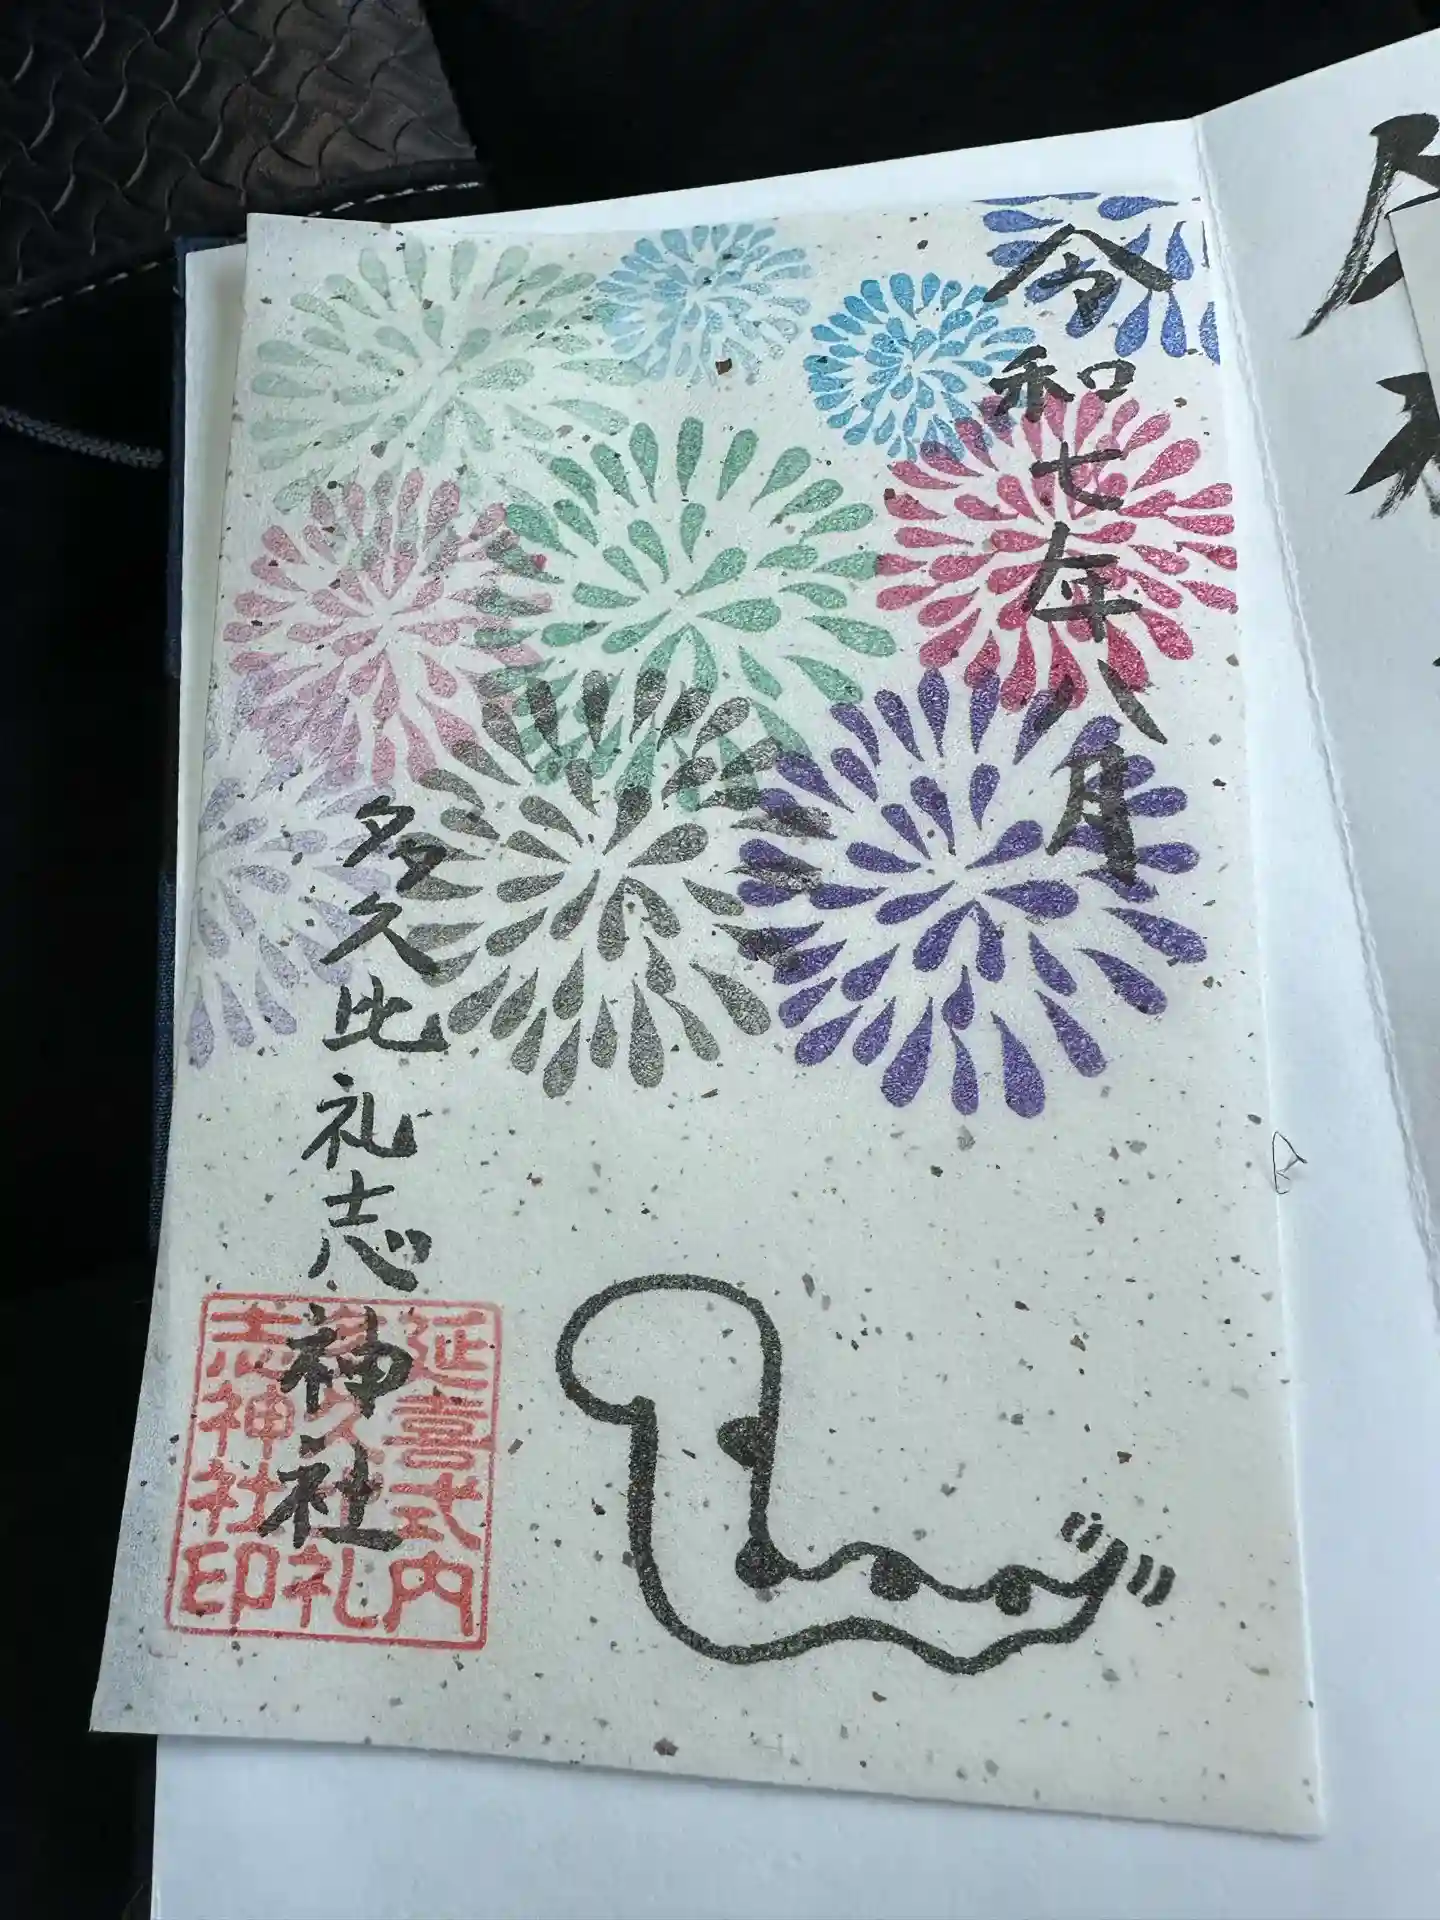 令和七年八月
多久比礼志神社
延喜式内
多久比礼
志神社印